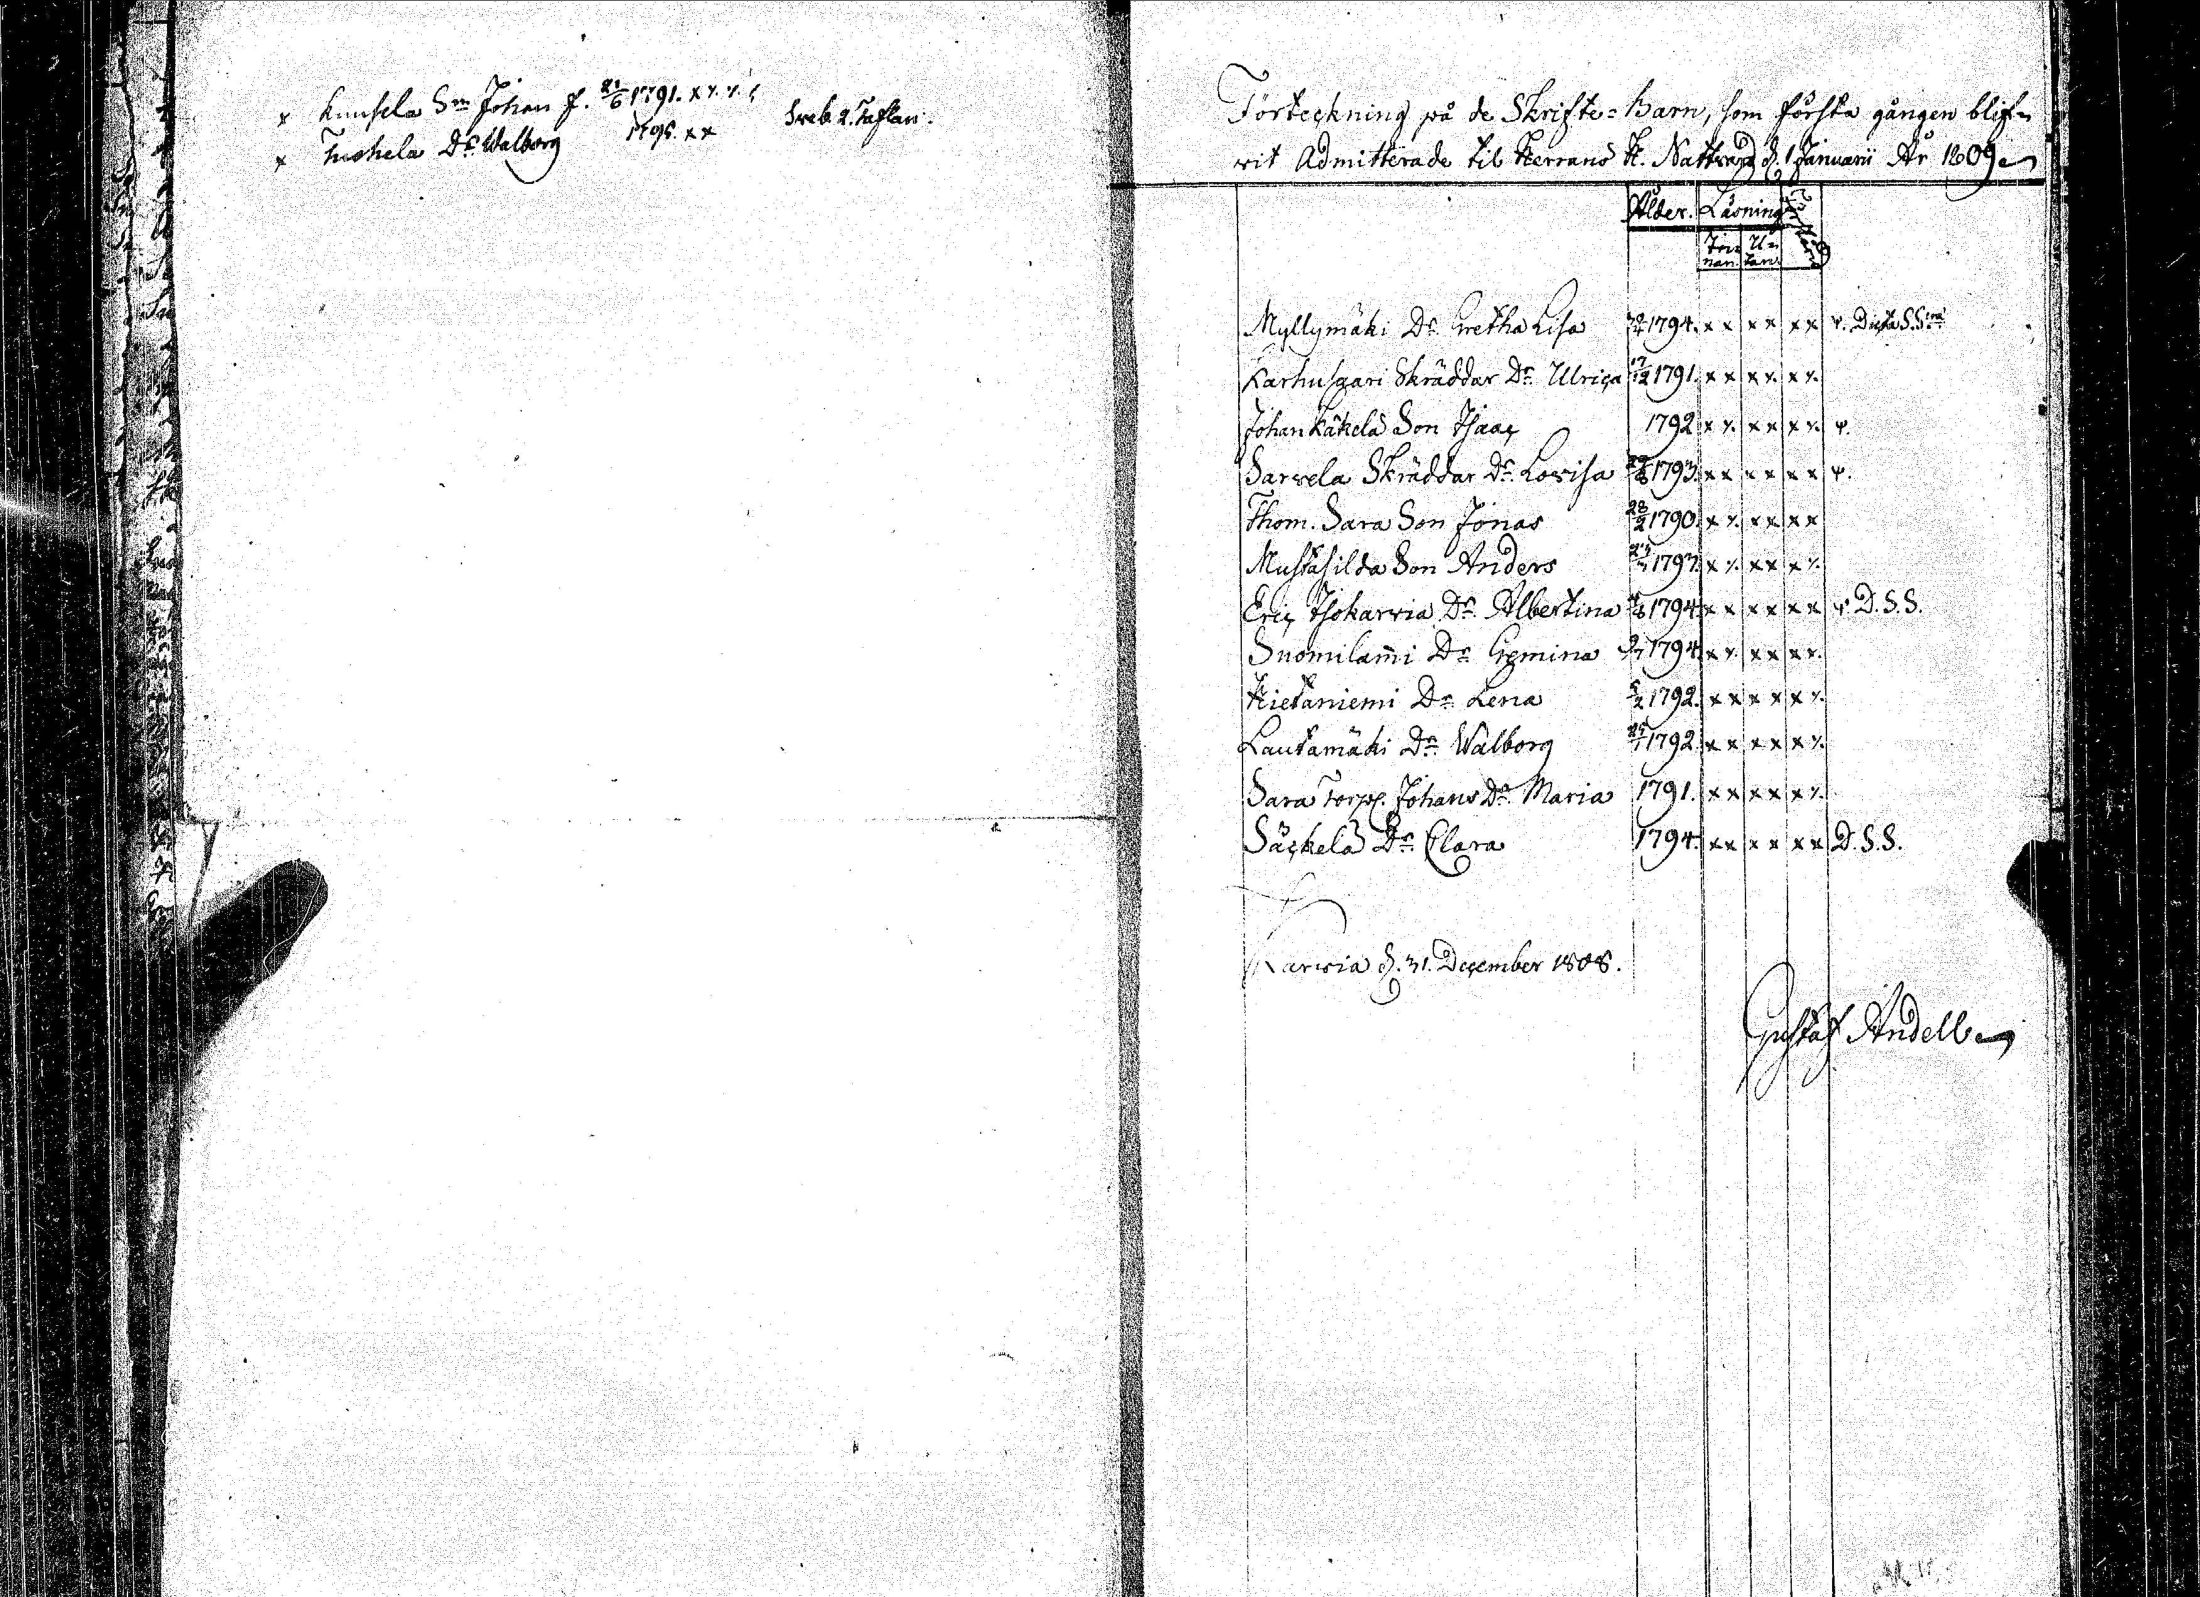 x Knusela Sn Johan f. 21/6 1791. x x. x.
x Tuohela Dr Walborg 1795. x x
Svebe 2. Taflan.
Förteckning på de Skrifte=Barn, som första gången blif=
wit Admitterade til Herrans H. Nattvard d. 1 Januarii År 1809
Ålder. Läsning
In=nan. U=tan.
Myllymäki Dr Gretha Lisa 1794. x x x x x x v. Dicta S. S:ra
Karhusaari Skräddar Dr Ulrica 17/12 1791. x x x x. x x.
Johan Käkelä Son Isaac 1792 x x. x x x x. v.
Sarvela Skräddar Dr Lovisa 1793. x x x x x x v.
Thom. Sara Son Jonas 28/2 1790. x x. x x x x
Mustasilda Son Anders 1793. x x. x x x x.
Eric Isokarvia Dr Albertina 1794. x x x x x x v. D. S. S.
Suomilam̄i Dr Hemina 1794. x x. x x x x.
Hietaniemi Dr Lena 5/2 1792. x x x x x x.
Lautamäki Dr Walborg 25/1 1792. x x x x x x.
Sara Torp. Johans Dr Maria 1791. x x x x x x.
Säckelä Dr Clara 1794. x x x x x x D. S. S.
Karvia d. 31. December 1808.
Gustaf Andell